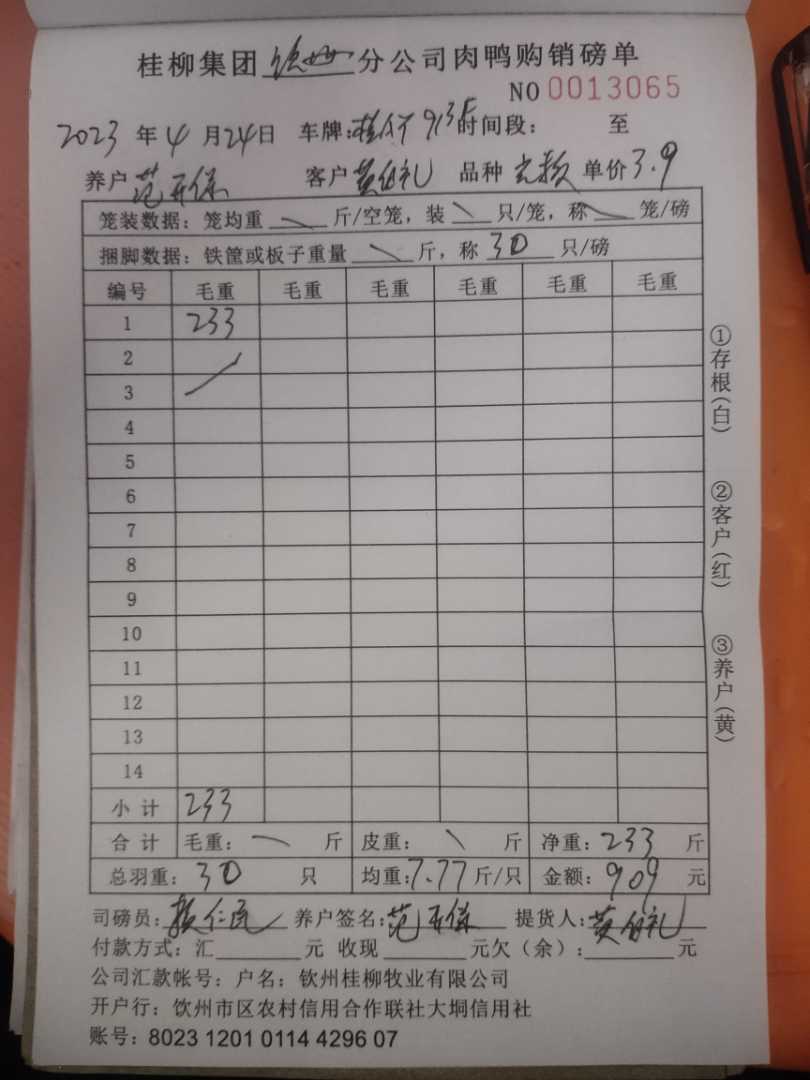 桂柳集团钦州分公司肉鸭购销磅单
NO 0013065
2023 年 4 月 24 日 车牌: 时间段: 至
养户 范 客户 黄 礼 品种 单价 3.9
笼装数据: 笼均重 斤/空笼, 装 只/笼, 称 笼/磅
捆脚数据: 铁筐或板子重量 斤, 称 30 只/磅
编号 毛重 毛重 毛重 毛重 毛重 毛重
1 233
2
3
4
5
6
7
8
9
10
11
12
13
14
小计 233
合计 毛重: 斤 皮重: 斤 净重: 233 斤
总羽重: 30 只 均重: 7.77 斤/只 金额: 909 元
司磅员: 仁民 养户签名: 范 提货人: 黄 礼
付款方式: 汇 元 收现 元欠(余): 元
公司汇款帐号: 户名: 钦州桂柳牧业有限公司
开户行: 饮州市区农村信用合作联社大垌信用社
账号: 8023 1201 0114 4296 07
①存根(白)
②客户(红)
③养户(黄)